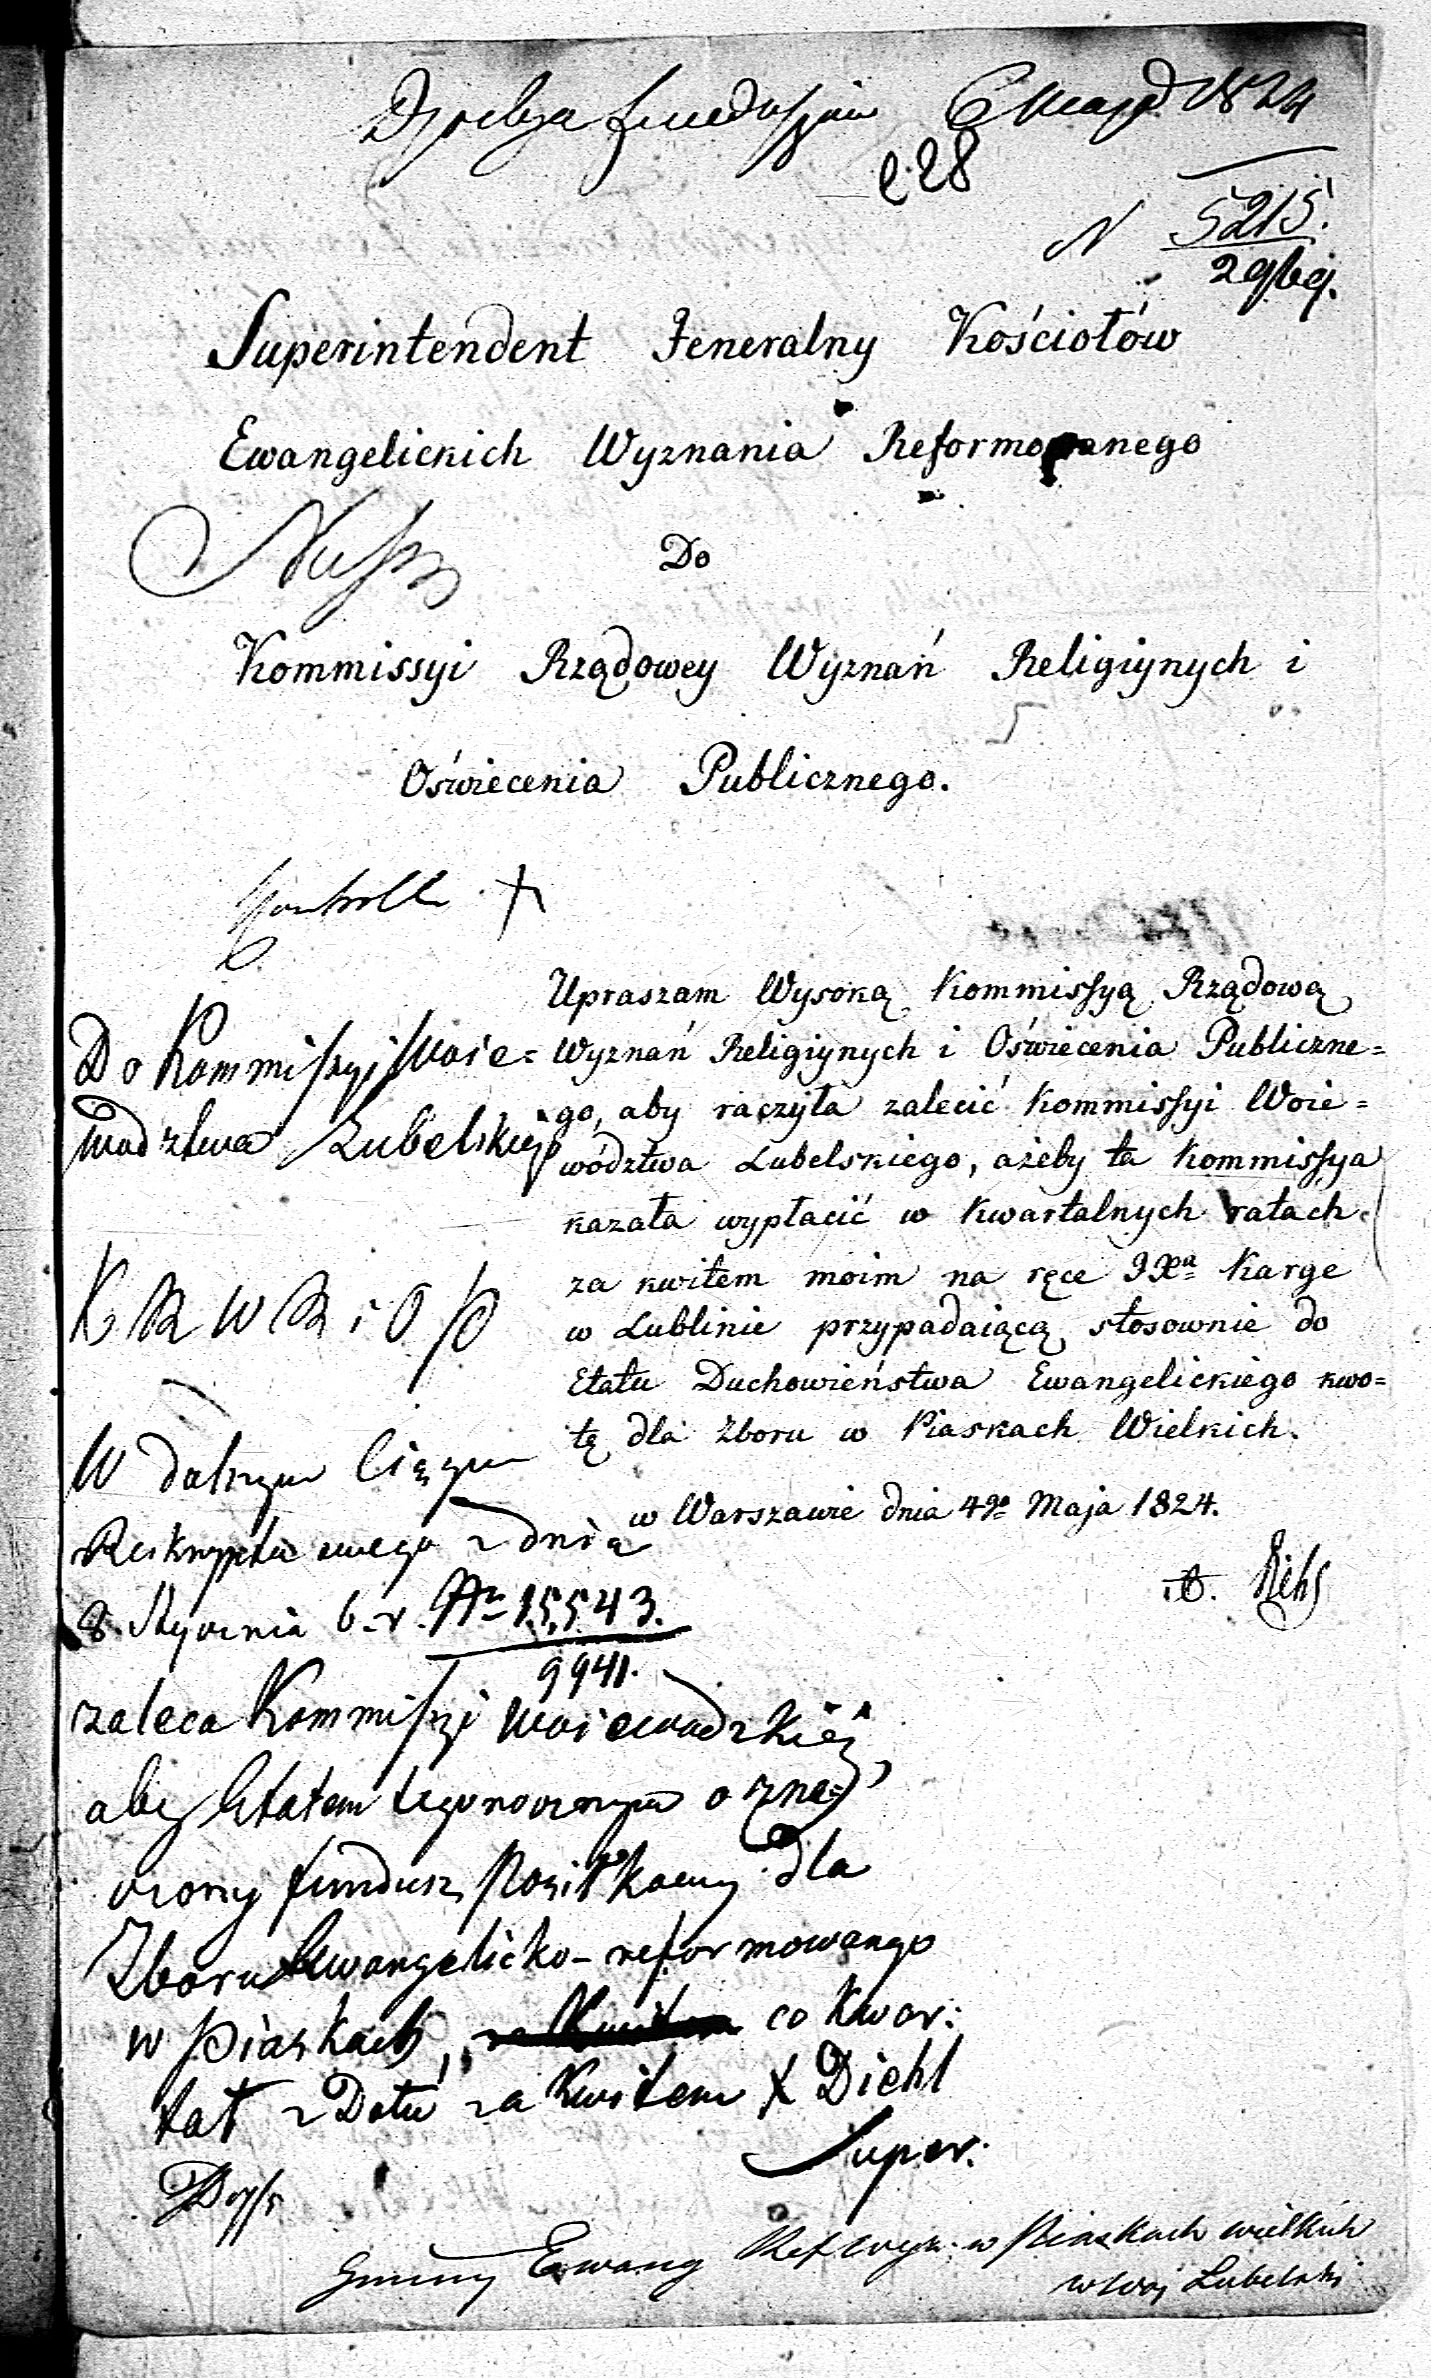 6 Maja 1824
28
N 5215.
Superintendent Jeneralny Kościołów
Ewangelickich Wyznania Reformowanego
Do
Kommissyi Rządowey Wyznań Religiynych i
Oświecenia Publicznego.
Upraszam Wysoką Kommissyą Rządową
Wyznań Religiynych i Oświecenia Publiczne=
go, aby raczyła zalecić Kommissyi Woie=
wództwa Lubelskiego, ażeby ta Kommissya
kazała wypłacić w kwartalnych ratach
za kwitem moim na ręce JXa Karge
w Lublinie przypadaiącą stosownie do
Etatu Duchowieństwa Ewangelickiego kwo=
tę dla Zboru w Piaskach Wielkich.
w Warszawie dnia 4go Maja 1824.
Do Kommissyi Woie=
wodztwa Lubelskiego
K R W R i O P
W dalszym Ciągu
Reskryptu swego z dnia
8. Stycznia b. r. Nr 15,543.
9941.
zaleca Kommissyi Woiewodzkiéy,
aby Etatem tegorocznym ozna=
czony fundusz Posiłkowy dla
Zboru Ewangelicko-reformowanego
w Piaskach, co Kwar:
tał z Dołu za Kwitem X Diehl
Super:
Gminy Ewang Ref wyzn: w Piaskach wielkich
w Woj Lubelski